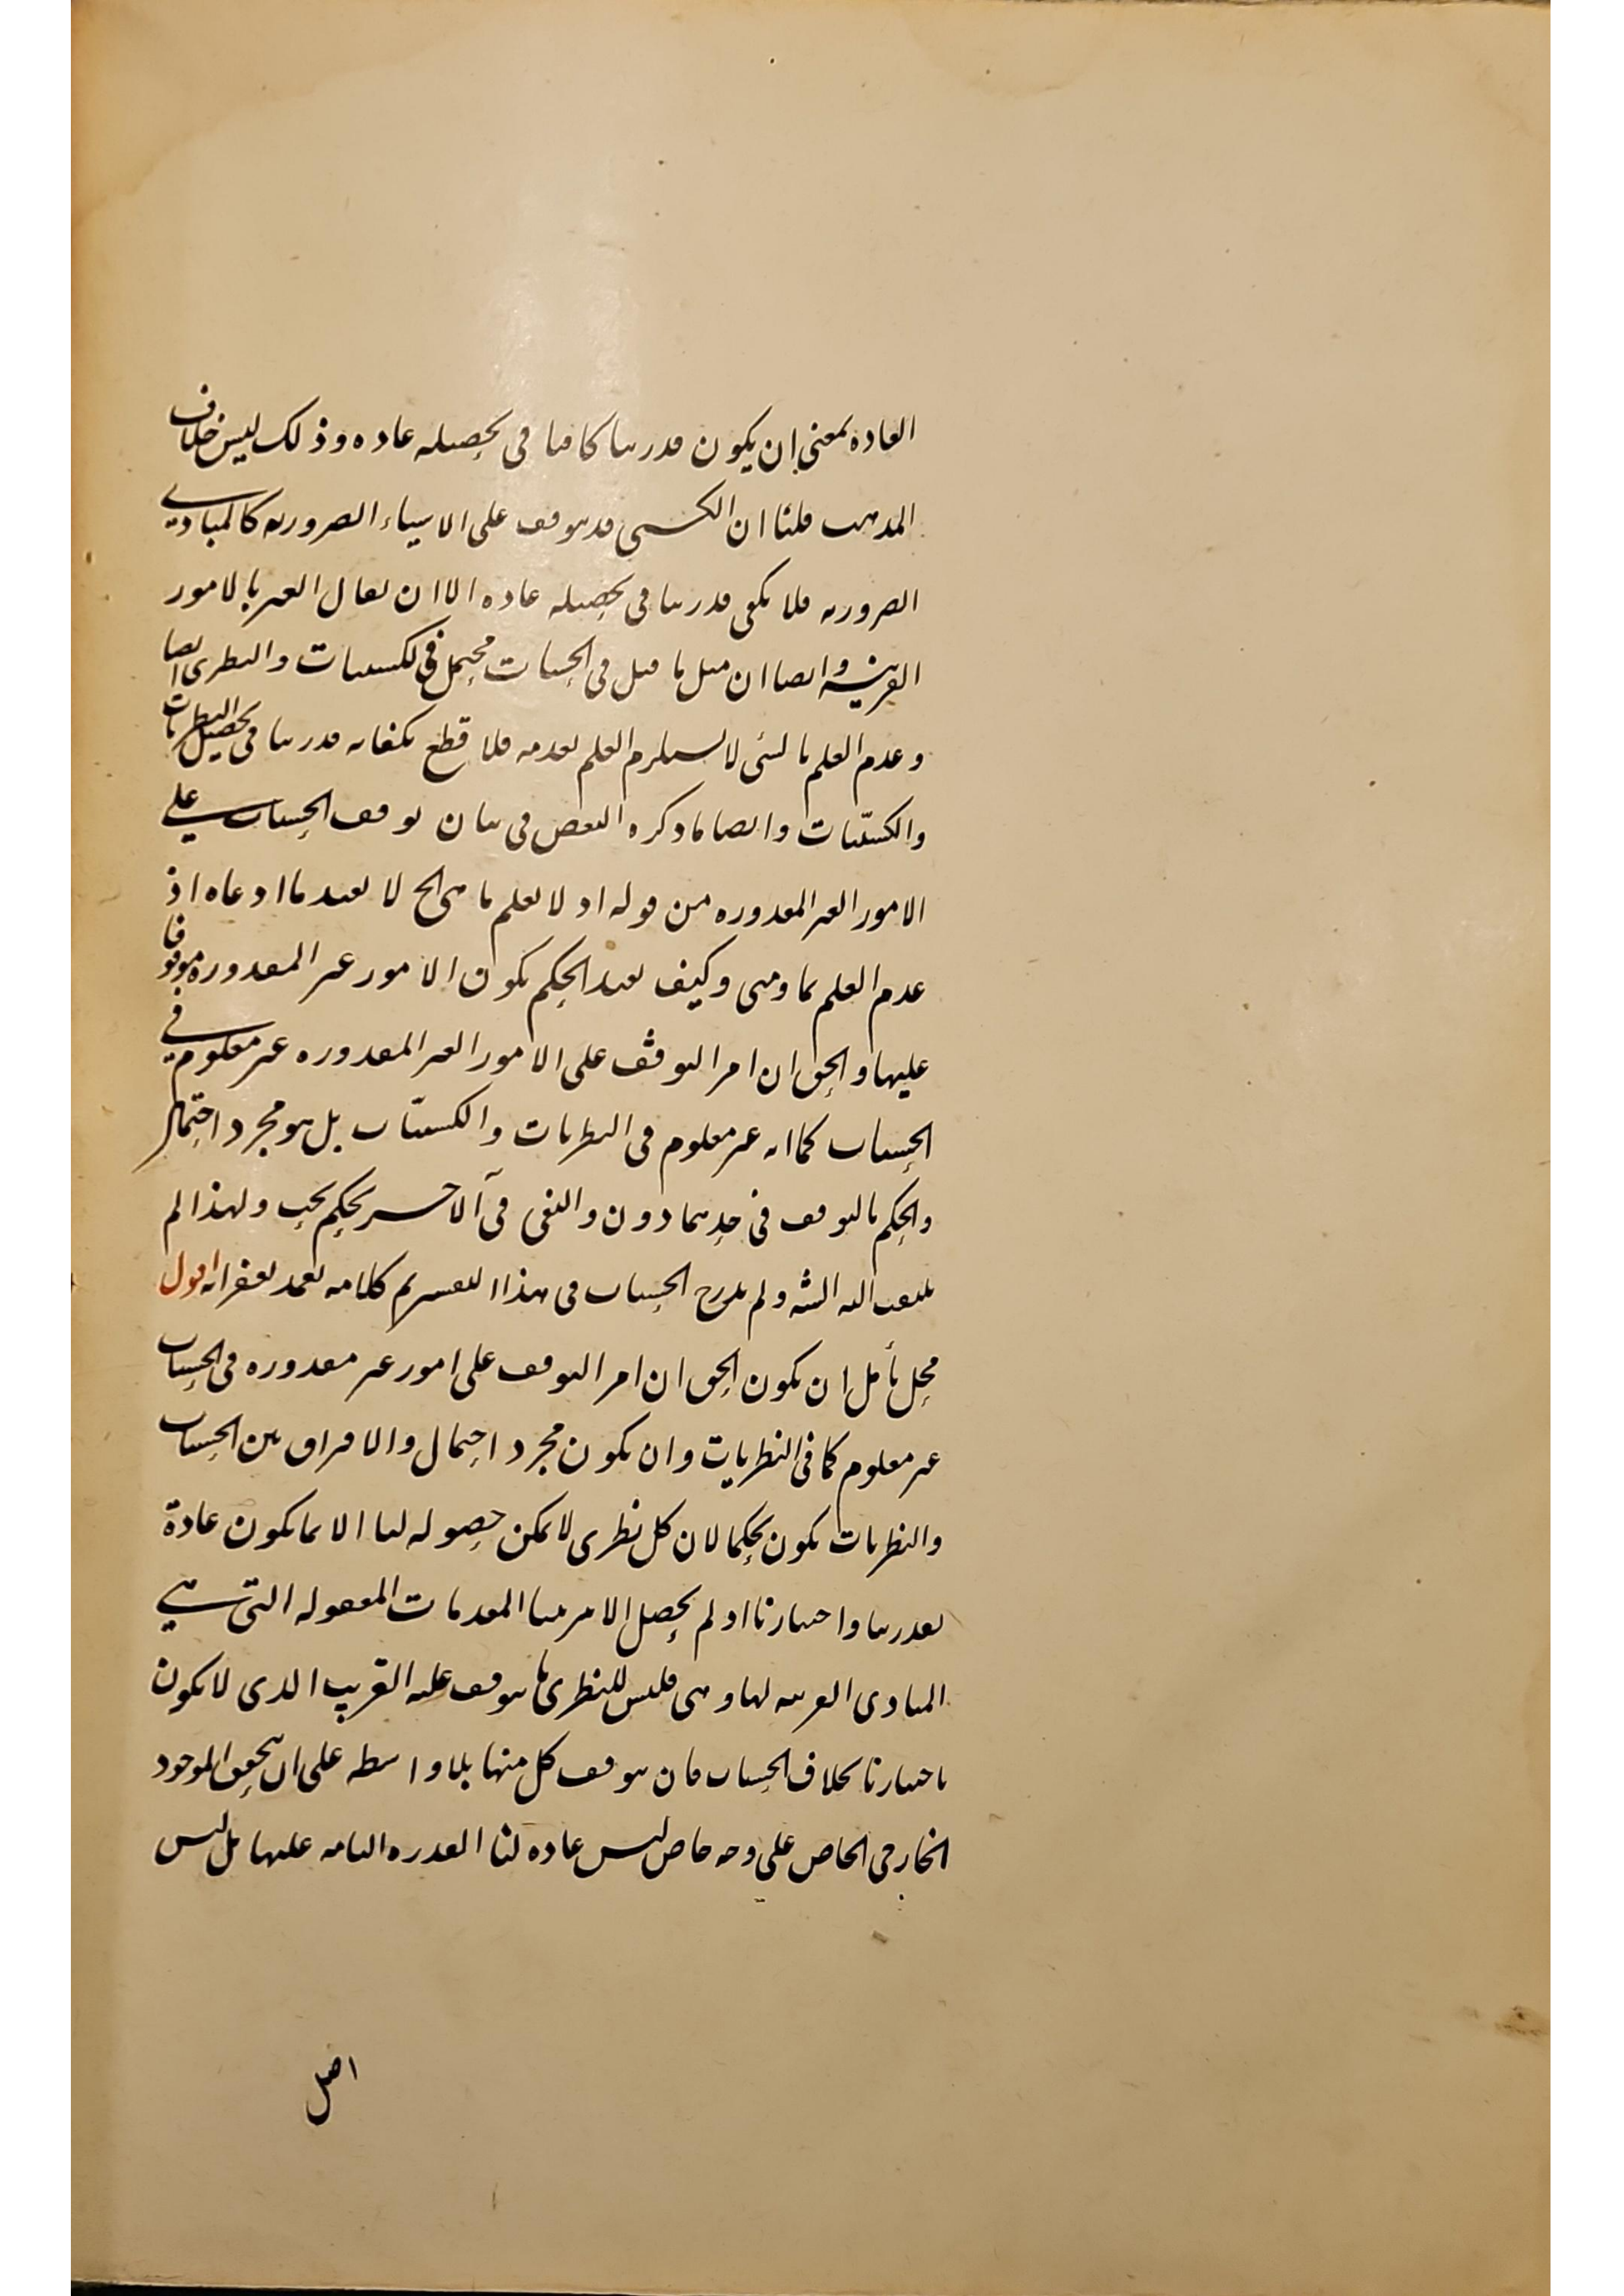 العاده بمعنى ان يكون قدرتنا كافيا فى تحصيله عاده وذلك ليس خلاف
المذهب قلنا ان الكسبى قد يتوقف على الاشياء الضروريه كالمبادى
الضروريه فلا يكفى قدرتنا فى تحصيله عاده الا ان يقال الغير بالامور
القريبه وايضا ان مثل ما قيل فى الحسيات محتمل فى الكسبيات والنظرى ايضا
وعدم العلم بالشئ لا يستلزم العلم بعدمه فلا قطع بكفايه قدرتنا فى تحصيل النظريات
والكسبيات وايضا ما ذكره البعض فى بيان توقف الحسيات على
الامور الغير المقدوره من قوله اذ لا يعلم ما هى الخ لا يفيد ما ادعاه اذ
عدم العلم بما ومتى وكيف يفيد الحكم بكون الامور غير المقدوره موقوفا
عليها والحق ان امر التوقف على الامور الغير المقدوره غير معلوم فى
الحسيات كما انه غير معلوم فى النظريات والكسبيات بل هو مجرد احتمال
والحكم بالتوقف فى احدهما دون والنفى فى الآخر تحكم بحت ولهذا لم
يلتفت اليه الشه ولم يدرج الحسيات فى هذا التفسير تم كلامه تغمد بغفرانه اقول
محل تأمل ان يكون الحق ان امر التوقف على امور غير مقدوره فى الحسيات
غير معلوم كما فى النظريات وان يكون مجرد احتمال والافتراق بين الحسيات
والنظريات يكون تحكما لان كل نظرى لا يمكن حصوله لنا الا بما يكون عادة
بقدرتنا واختيارنا اذ لم يحصل الا من ترتيبنا المقدمات المعقوله التى هى
المبادى القريبه لها وهى فليس للنظرى ما يتوقف عليه القريب الذى لا يكون
باختيارنا بخلاف الحسيات فان يتوقف كل منها بلا واسطه على ان تحقق الموجود
الخارجى الخاص على وجه خاص ليس عاده لنا القدره التامه عليها بل ليس
اصل